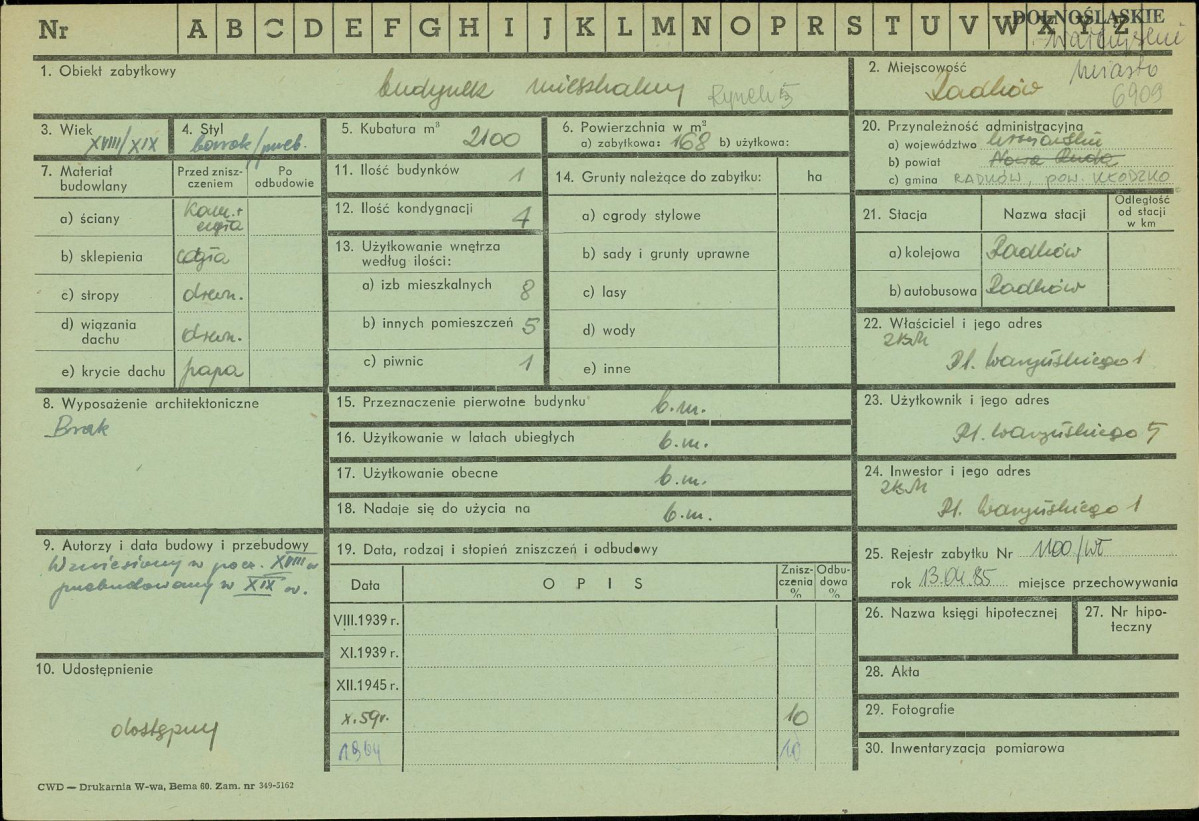 Nr A B C D E F G H I J K L M N O P R S T U V W X Y Z
DOLNOŚLĄSKIE
miasto
6909
1. Obiekt zabytkowy
budynek mieszkalny Rynek 5
2. Miejscowość
Radków
3. Wiek
XVIII/XIX
4. Styl
barok/przeb.
5. Kubatura m³
2100
6. Powierzchnia w m²
a) zabytkowa: 168 b) użytkowa:
7. Materiał budowlany
Przed znisz-
czeniem
Po
odbudowie
a) ściany
kam.+
cegła
b) sklepienia cegła
c) stropy drewn.
d) wiązania
dachu drewn.
e) krycie dachu papa
8. Wyposażenie architektoniczne
Brak
9. Autorzy i data budowy i przebudowy
Wzniesiony w pocz. XVIII w
przebudowany w XIX w.
10. Udostępnienie
dostępny
11. Ilość budynków 1
12. Ilość kondygnacji 4
13. Użytkowanie wnętrza
według ilości:
a) izb mieszkalnych 8
b) innych pomieszczeń 5
c) piwnic 1
14. Grunty należące do zabytku: ha
a) ogrody stylowe
b) sady i grunty uprawne
c) lasy
d) wody
e) inne
15. Przeznaczenie pierwotne budynku b.m.
16. Użytkowanie w latach ubiegłych b.m.
17. Użytkowanie obecne b.m.
18. Nadaje się do użycia na b.m.
19. Data, rodzaj i stopień zniszczeń i odbudowy
Data OPIS
Znisz-
czenia
%
Odbu-
dowa
%
VIII.1939 r.
XI.1939 r.
XII.1945 r.
X.59r. 10
1964 10
20. Przynależność administracyjna
a) województwo wrocławskie
b) powiat Nowa Ruda
c) gmina RADKÓW, POW. KŁODZKO
21. Stacja Nazwa stacji
Odległość
od stacji
w km
a) kolejowa Radków
b) autobusowa Radków
22. Właściciel i jego adres
ZBM
Pl. Waryńskiego 1
23. Użytkownik i jego adres
Pl. Waryńskiego 5
24. Inwestor i jego adres
ZBM
Pl. Waryńskiego 1
25. Rejestr zabytku Nr 1100/WŁ
rok 13.04.85 miejsce przechowywania
26. Nazwa księgi hipotecznej
27. Nr hipo-
teczny
28. Akta
29. Fotografie
30. Inwentaryzacja pomiarowa
CWD — Drukarnia W-wa, Bema 60. Zam. nr 349-5162